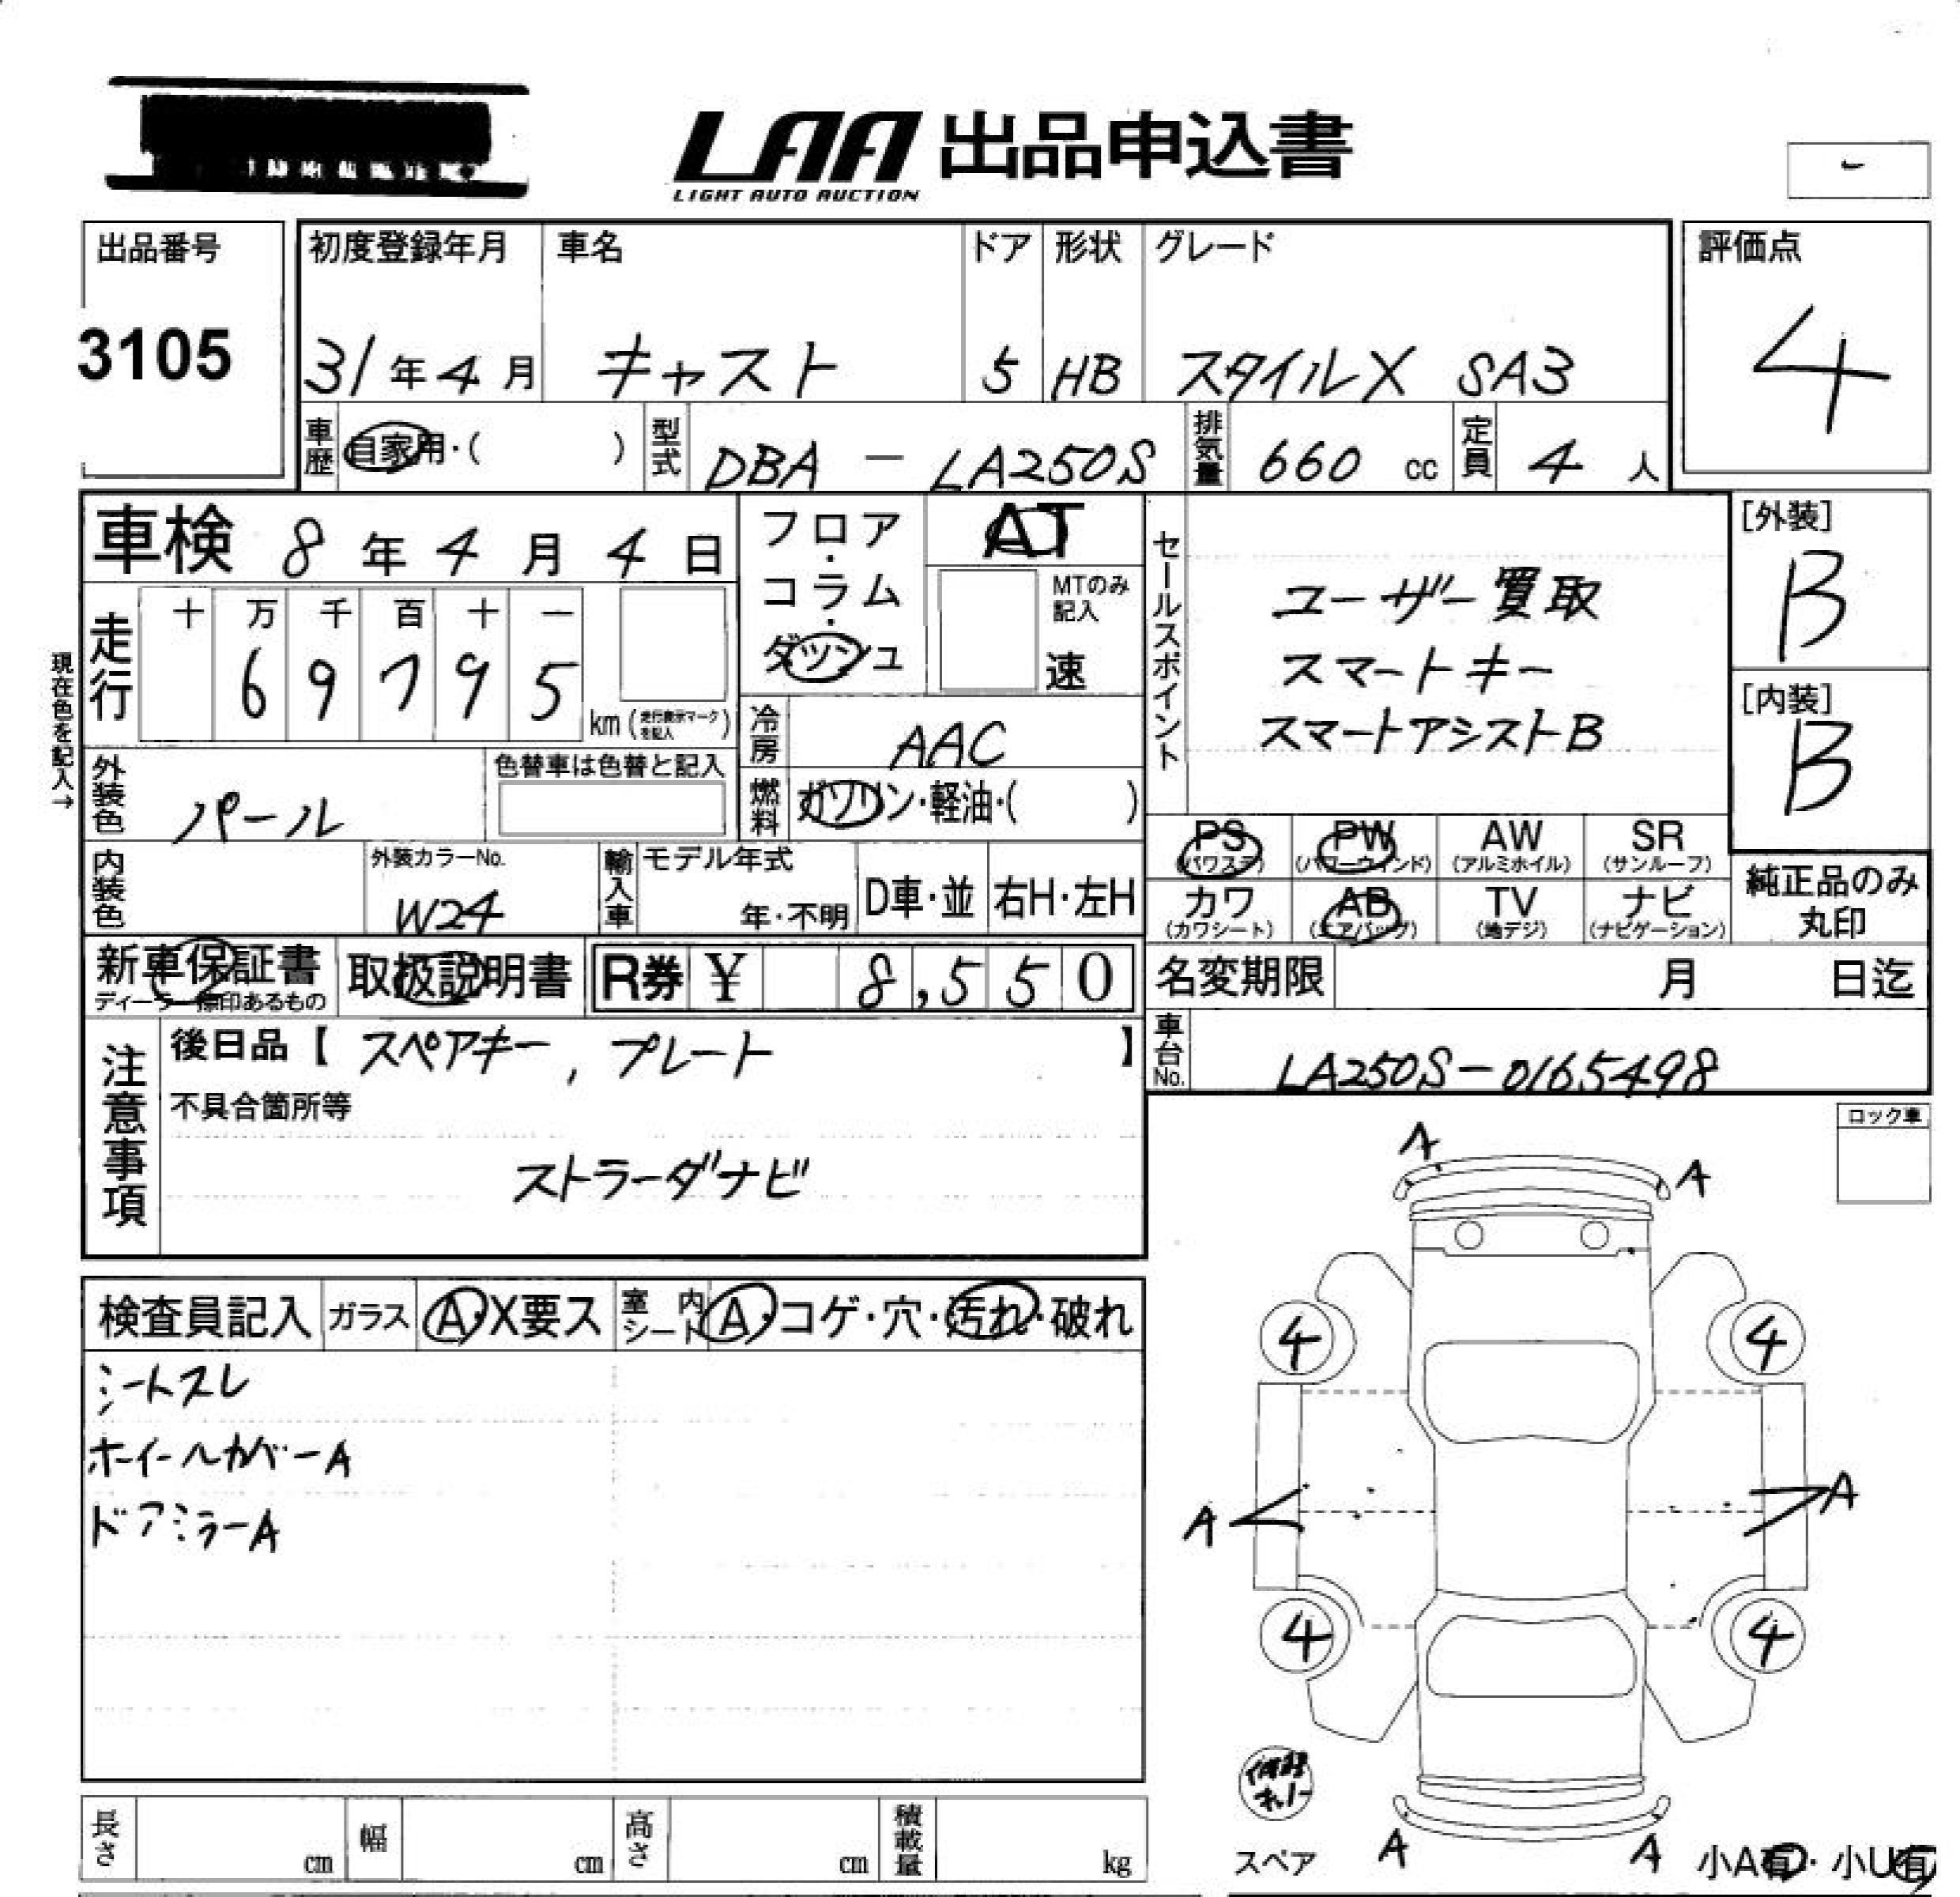 LAA 出品申込書
LIGHT AUTO AUCTION
-
出品番号
3105
初度登録年月 車名 ドア 形状 グレード
31年4月 キャスト 5 HB スタイルX SA3
評価点
4
車歴 自家用・( ) 型式 DBA - LA250S 排気量 660 cc 定員 4 人
車検 8年4月4日
フロア・コラム・ダッシュ
AT
MTのみ記入
速
セールスポイント
ユーザー買取
スマートキー
スマートアシストB
[外装]
B
[内装]
B
現在色を記入→
走行 十 万 千 百 十 一
69795
km (走行表示マークを記入)
冷房 AAC
燃料 ガソリン・軽油・( )
外装色 パール
色替車は色替と記入
内装色
外装カラーNo.
W24
輸入車 モデル年式
年・不明 D車・並 右H・左H
PS PW AW SR
(パワステ) (パワーウィンド) (アルミホイル) (サンルーフ)
カワ AB TV ナビ
(カワシート) (エアバッグ) (地デジ) (ナビゲーション)
純正品のみ
丸印
新車保証書 取扱説明書 R券 ¥ 8,550
名変期限 月 日迄
車台No. LA250S-0165498
注意事項
後日品【スペアキー, プレート】
不具合箇所等
ストラーダナビ
ロック車
検査員記入 ガラス A・X要ス 室内シート A・コゲ・穴・汚れ・破れ
シートスレ
ホイールカバーA
ドアミラーA
A
A
4
4
A
A
4
4
スペア
A
A
小A有・小U有
長さ cm 幅 cm 高さ cm 積載量 kg